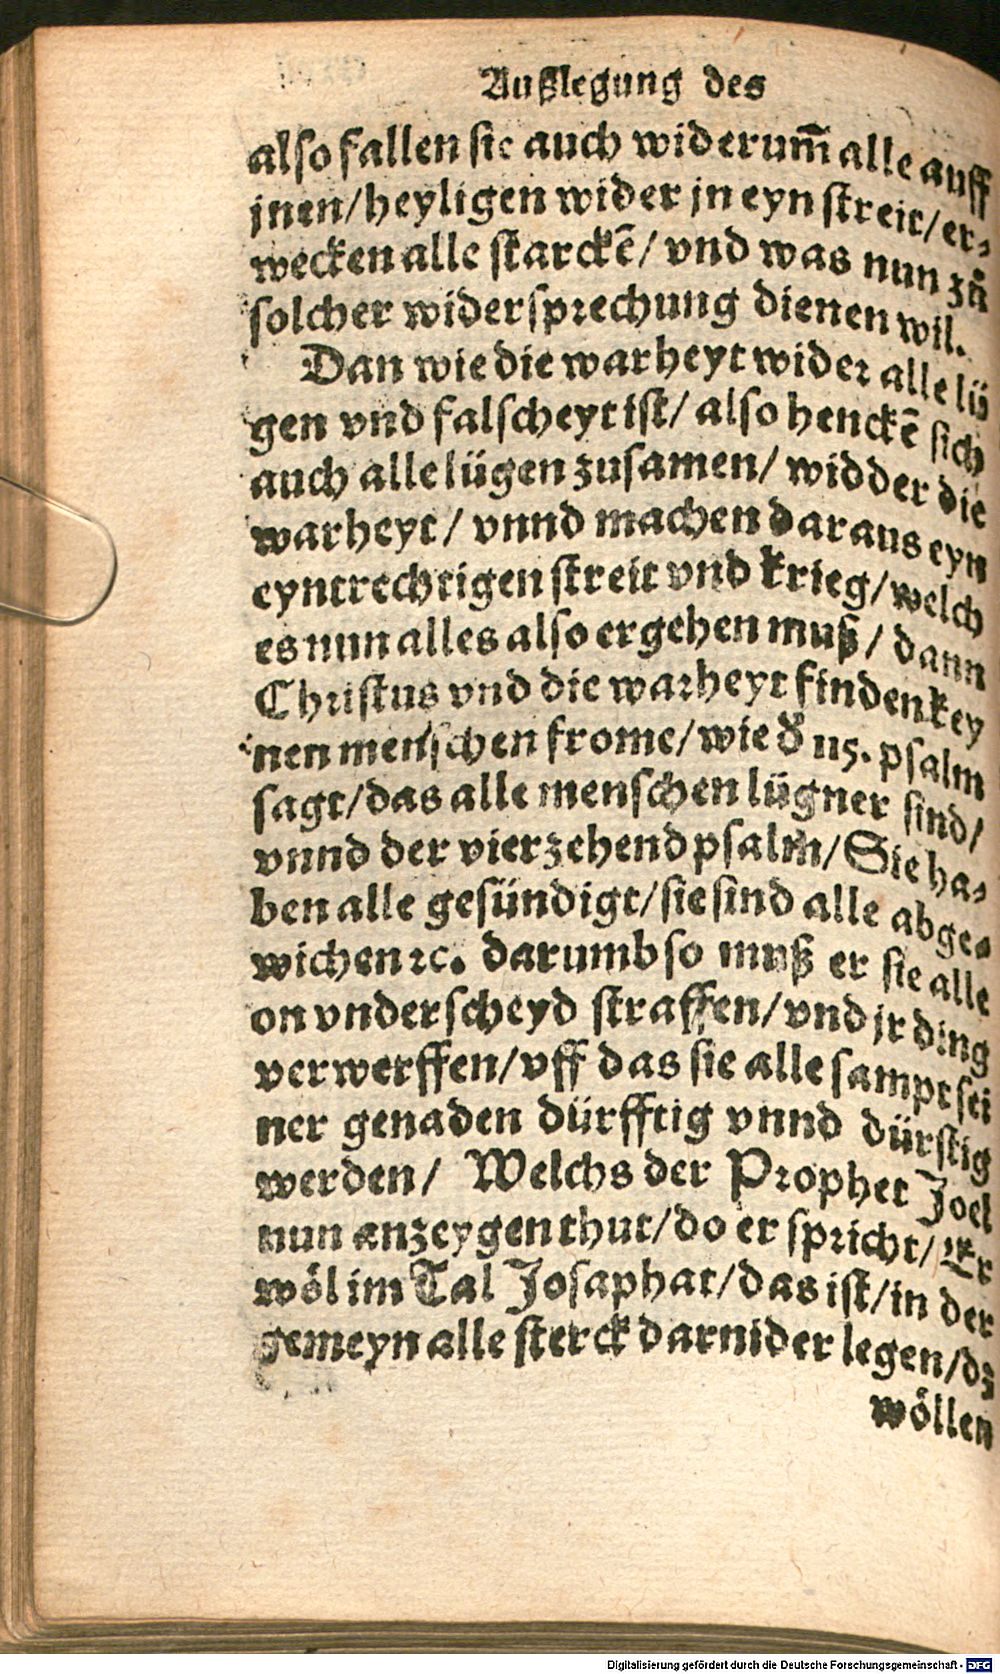 Außlegung des
also fallen sie auch widerum̃ alle auff
jnen/heyligen wider jn eyn streit/er-
wecken alle starckẽ/ vnd was nun zů
solcher widersprechung dienen wil.
Dan wie die warheyt wider alle lü
gen vnd falscheyt ist/ also henckẽ sich
auch alle lügen zusamen/ widder die
warheyt/ vnnd machen daraus eyn
eyntrechtigen streit vnd krieg/welch
es nun alles also ergehen muß/ dann
Christus vnd die warheyt finden key
nen menschen frome/wie d̕ 115. psalm
sagt/das alle menschen lügner sind/
vnnd der vierzehend psalm/Sie ha-
ben alle gesündigt/sie sind alle abge-
wichen ⁊c. darumb so muß er sie alle
on vnderscheyd straffen/vnd jr ding
verwerffen/vff das sie alle sampt sei
ner genaden dürfftig vnnd dürstig
werden/ Welchs der Prophet Joel
nun anzeygen thut/do er spricht/Er
wöl im Tal Josaphat/das ist/in der
gemeyn alle sterck darnider legen/dz
wöllen
Digitalisierung gefördert durch die Deutsche Forschungsgemeinschaft - DFG